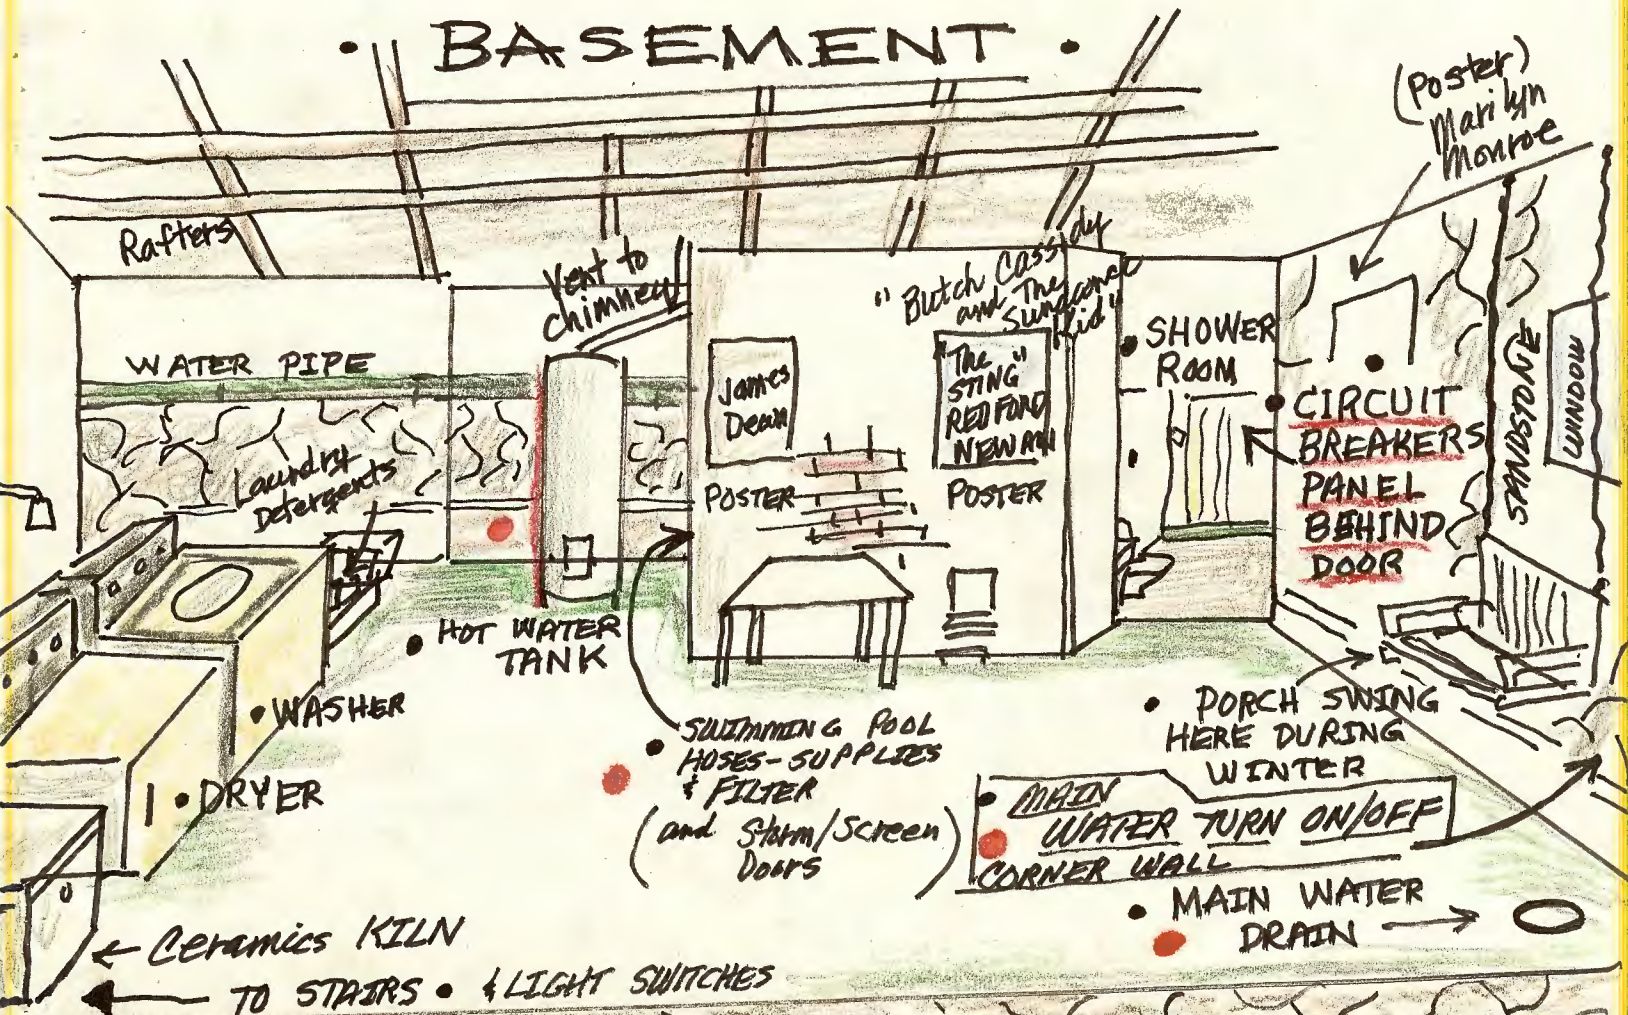 • BASEMENT •
(Poster)
Marilyn
Monroe
Rafters
Vent to
chimney
"Butch Cassidy
and The
Sundance
Kid"
WATER PIPE
SHOWER
ROOM
James
Dean
"The
STING"
REDFORD
NEWMAN
SANDSTONE
WINDOW
Laundry
Detergents
POSTER
POSTER
• CIRCUIT
BREAKERS
PANEL
BEHIND
DOOR
• HOT WATER
TANK
• WASHER
• DRYER
• SWIMMING POOL
HOSES-SUPPLIES
& FILTER
(and Storm/Screen
Doors)
• PORCH SWING
HERE DURING
WINTER
• MAIN
WATER TURN ON/OFF
CORNER WALL
• MAIN WATER
DRAIN
Ceramics KILN
TO STAIRS • & LIGHT SWITCHES